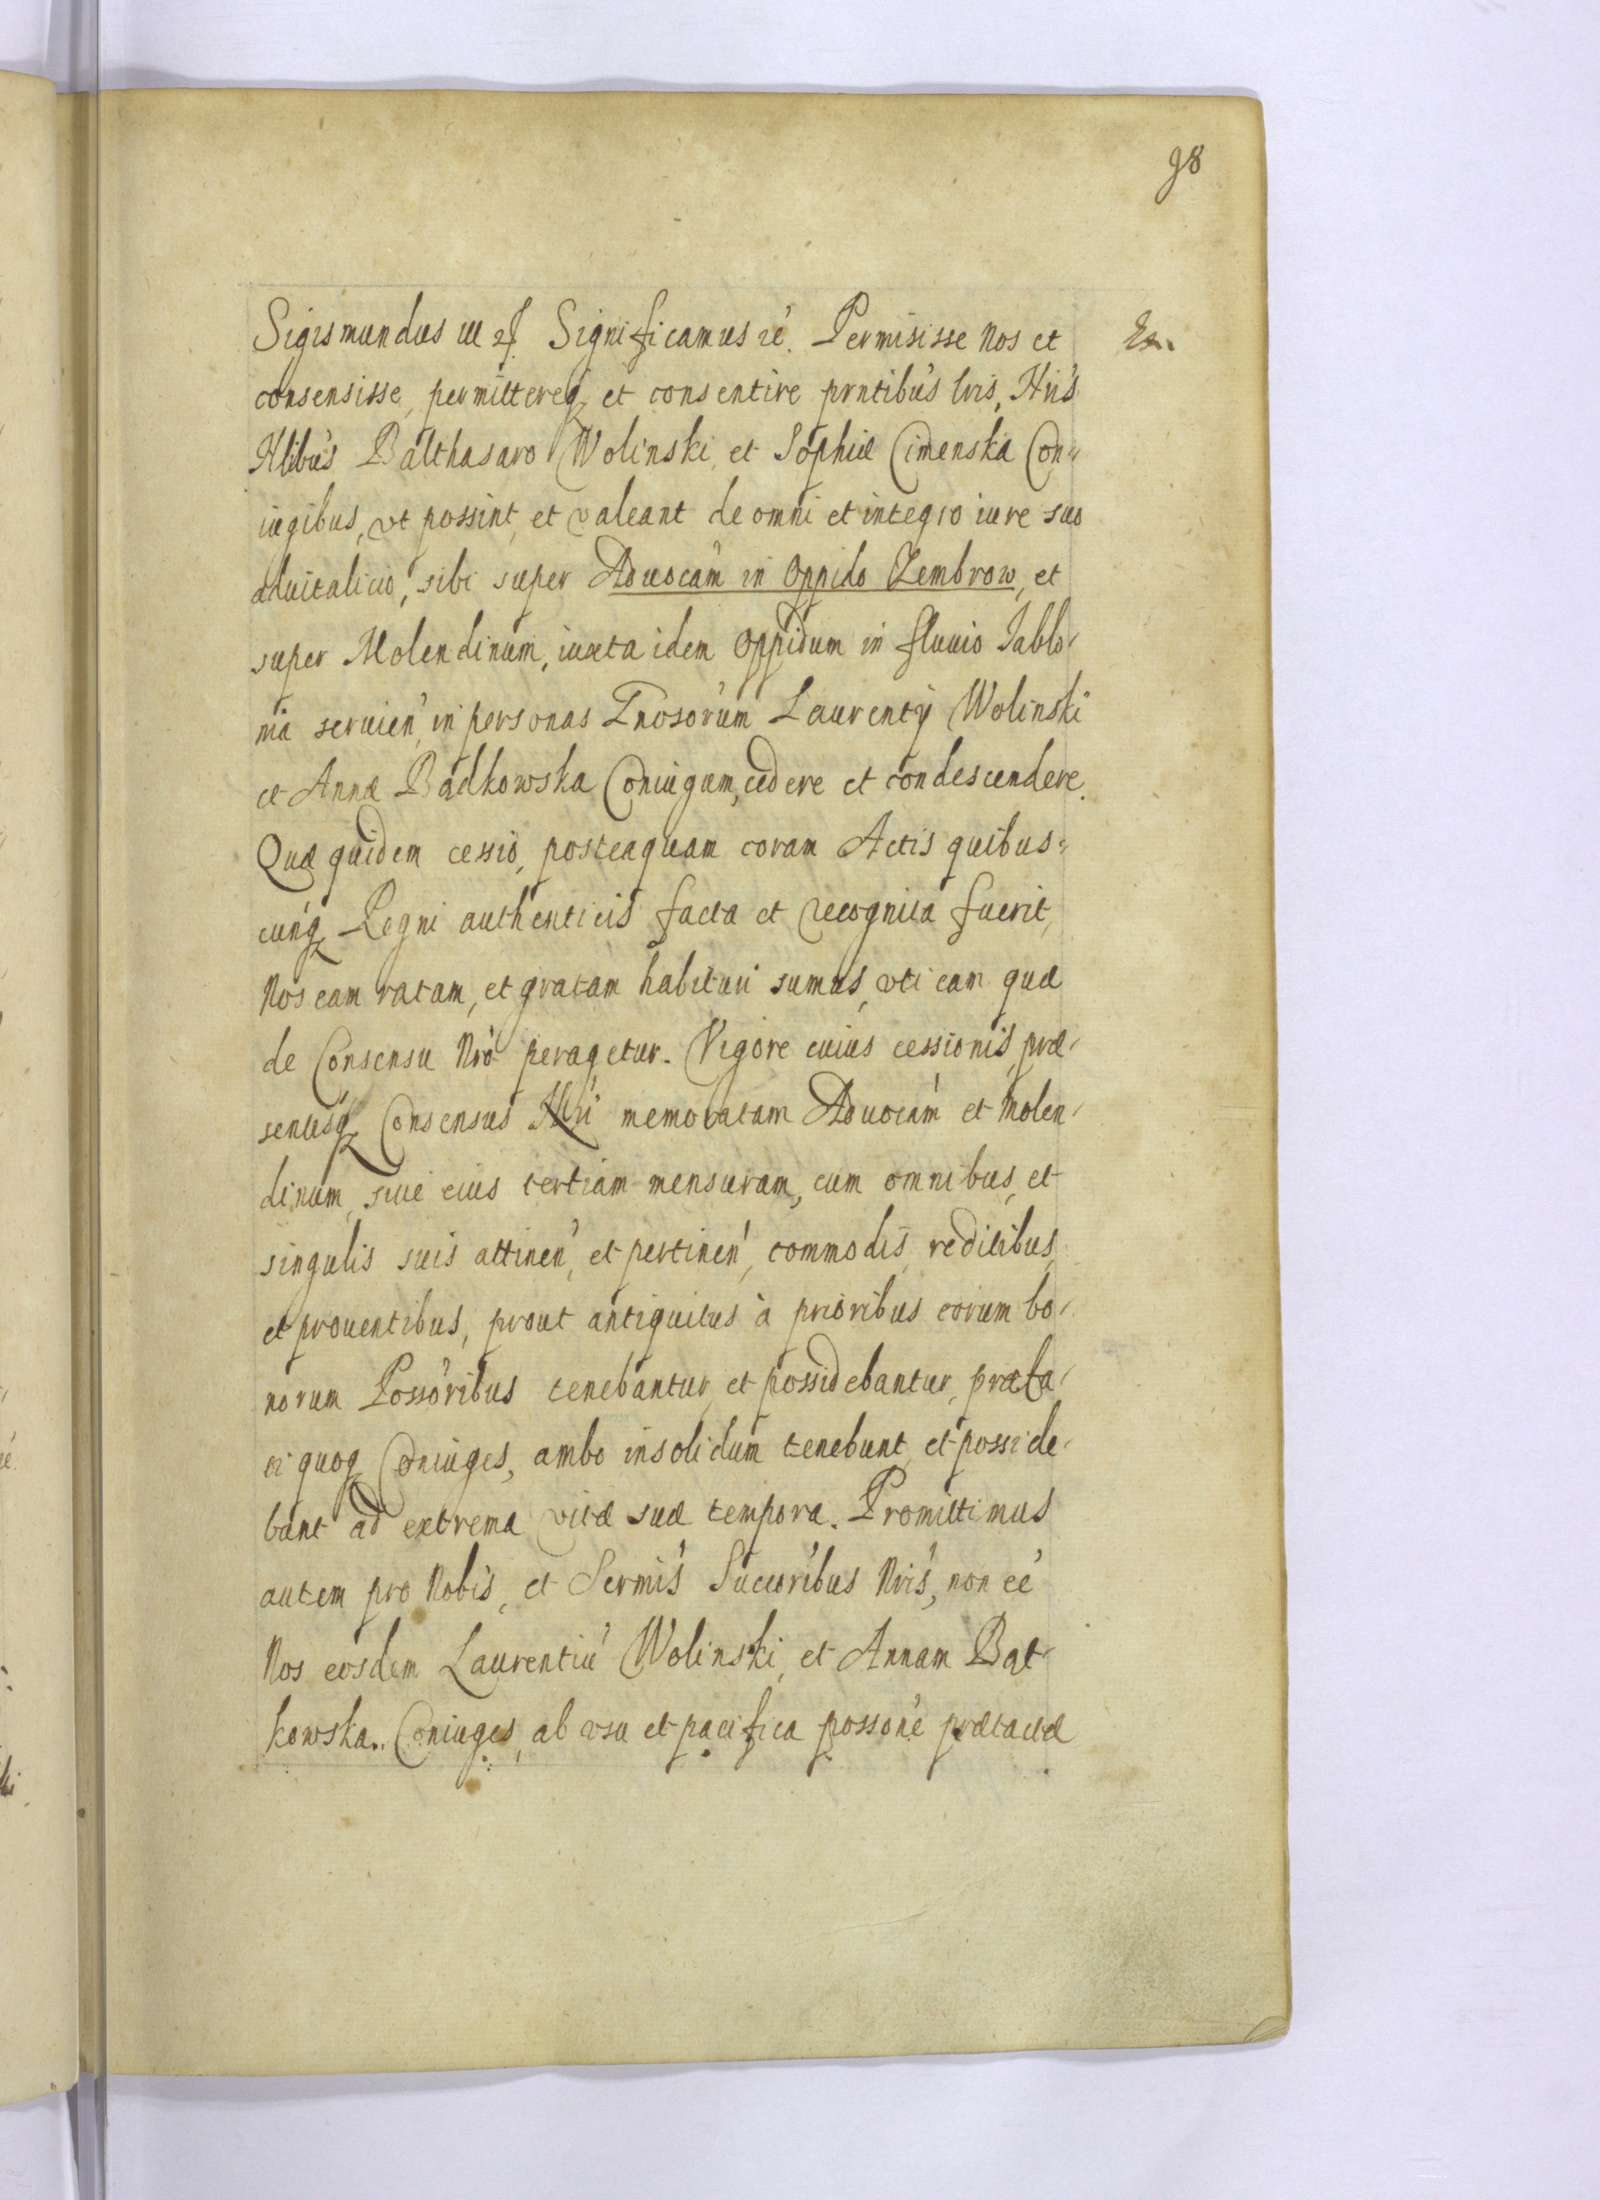 98
Sigismundus III Significamus Permisisse Nos et
consensisse, permittereq et consentire prntibus lris,
Balthasaro Wolinski, et Sophiæ Cimenska Con„
iugibus, vt possint, et valeant de omni et integro iure suo
aduitalicio, sibi super Aduocam in Oppido Zembrow, et
super Molendinum, iuxta idem Oppidum in fluuio Iablo-
nia seruien, in personas Gnosorum Laurentij Wolinski
et Annæ Badkowska Coniugum, cedere et condescendere.
Quæ quidem cessio, posteaquam coram Actis quibus„
cunq Regni authenticis facta et recognita fuerit,
Nos eam ratam, et gratam habituri sumus, vti eam quæ
de Consensu Nro peragetur. Vigore cuius cessionis, præ-
sentisq Consensus Nri memoratam Aduocam et Molen-
dinum, siue eius tertiam mensuram, cum omnibus, et
singulis suis attinen, et pertinen, commodis, reditibus,
et prouentibus, prout antiquitus à prioribus eorum bo-
norum Possoribus tenebantur, et possidebantur, præfa-
ti quoq Coniuges, ambo insolidum tenebunt et posside-
bunt ad extrema vitæ suæ tempora. Promittimus
autem pro Nobis, et Sermis Succoribus Nris, non ee
Nos eosdem Laurentiu Wolinski, et Annam Bat-
kowska. Coniuges, ab vsu et pacifica possone prætactæ